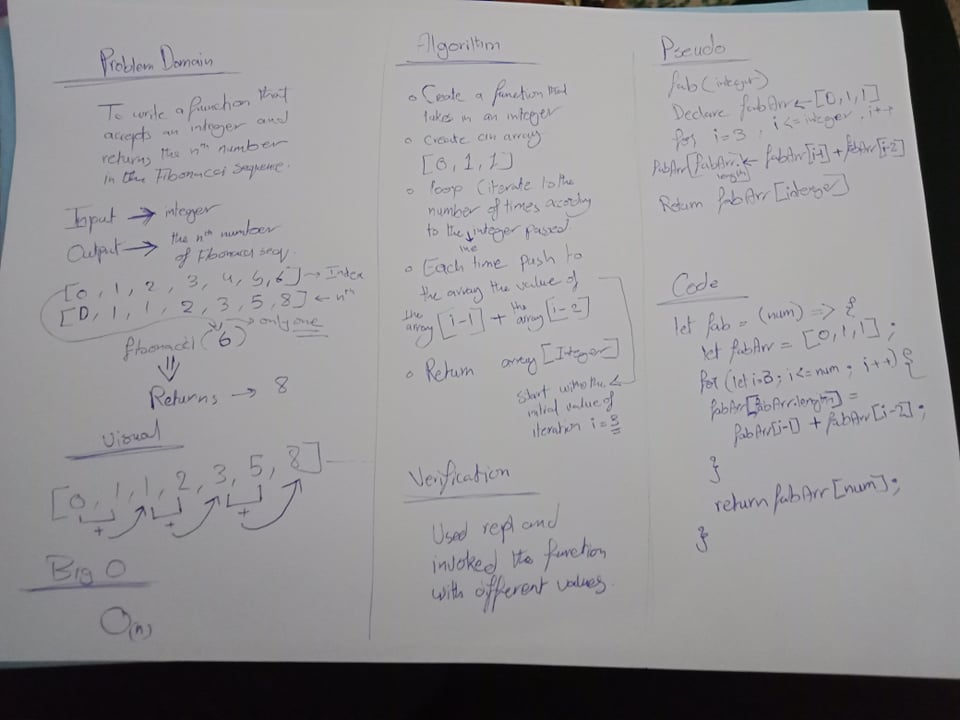 Problem Domain
To write a function that
accepts an integer and
returns the nth number
in the Fibonacci sequence.
Input → integer
Output → the nth number
of Fibonacci seq.
[0, 1, 2, 3, 4, 5, 6] → Index
[0, 1, 1, 2, 3, 5, 8] ← nth
→ only one
fibonacci(6)
⇓
Returns → 8
Visual
[0, 1, 1, 2, 3, 5, 8]
+ + +
Big O
O(n)
Algorithm
• Create a function that
takes in an integer
• create an array
[0, 1, 1]
• loop (iterate to the
number of times
to the integer passed
• Each time push to
the array the value of
the array [i-1] + the array [i-2]
• Return array [Integer]
Start with the
initial value of
iteration i = 3
Verification
Used repl and
invoked the function
with different values.
Pseudo
fab(integer)
Declare fabArr ← [0, 1, 1]
for i=3, i <= integer, i++
fabArr[fabArr.length] ← fabArr[i-1] + fabArr[i-2]
Return fabArr[interger]
Code
let fab = (num) => {
let fabArr = [0, 1, 1];
for (let i=3; i<=num; i++) {
fabArr[fabArr.length] =
fabArr[i-1] + fabArr[i-2];
}
return fabArr[num];
}